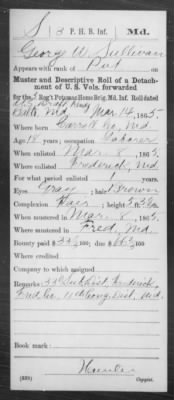 S | 3 P. H. B. Inf. | Md.
George W. Sullivan
Appears with rank of Pvt
Muster and Descriptive Roll of a Detachment of U. S. Vols. forwarded
for the 3 Reg't Potomac Home Brig. Md. Inf. Roll dated
Md. Mar 14, 1865
Where born Carroll Co, Md
Age 18 years; occupation Laborer
When enlisted Mar. 8, 1865
Where enlisted Frederick, Md
For what period enlisted 1 years.
Eyes Gray; hair Brown
Complexion Fair; height 5 ft. in.
When mustered in Mar. 8, 1865
Where mustered in Fred, Md
Bounty paid $ 33; due $
Where credited
Company to which assigned
Remarks: Frederick,
Fred Co, Cong. Dist. Md.
Book mark:
(339)
Copyist.